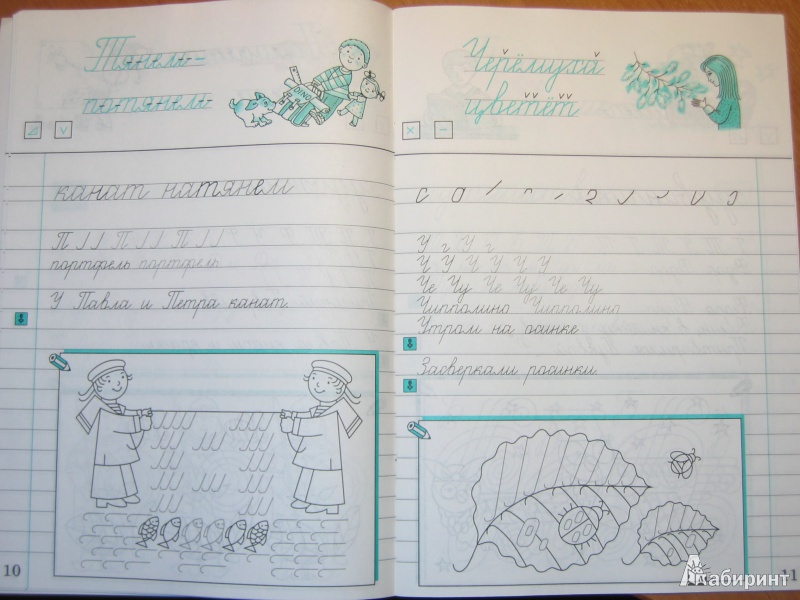 Тянем-
потянем
канат натянем
П П П
портфель портфель
У Павла и Петра канат.
10
Черёмуха
цветёт
У г У г
Ч У Ч У Ч У
Че Чу Че Чу Че Чу
Чипполино Чипполино
Утром на осинке
Засверкали росинки.
11
Лабиринт